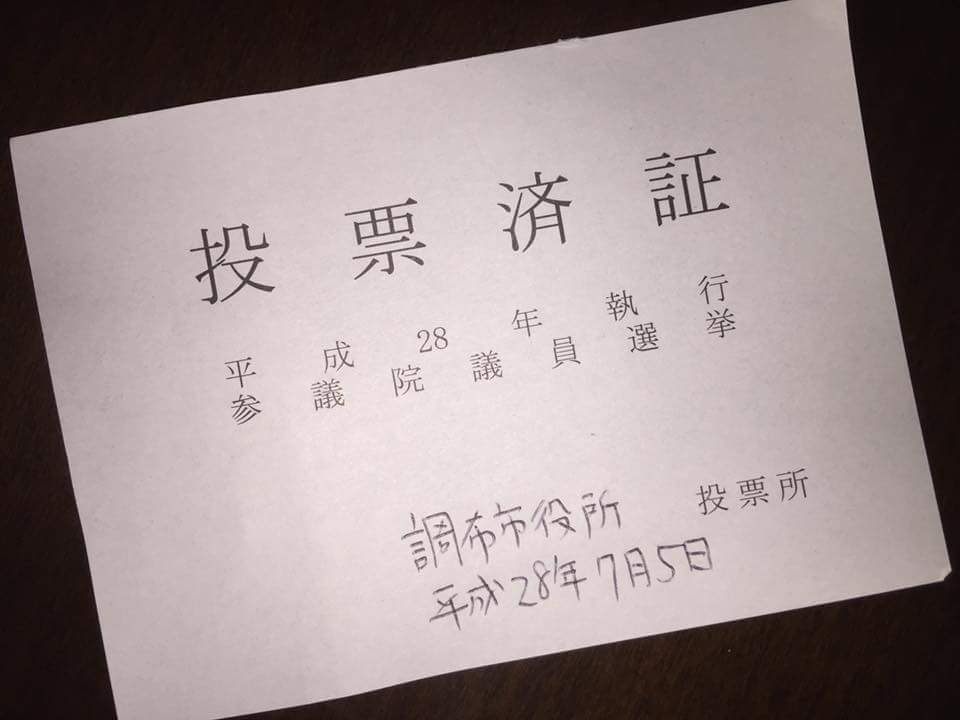 投票済証
平成28年執行
参議院議員選挙
調布市役所 投票所
平成28年7月5日